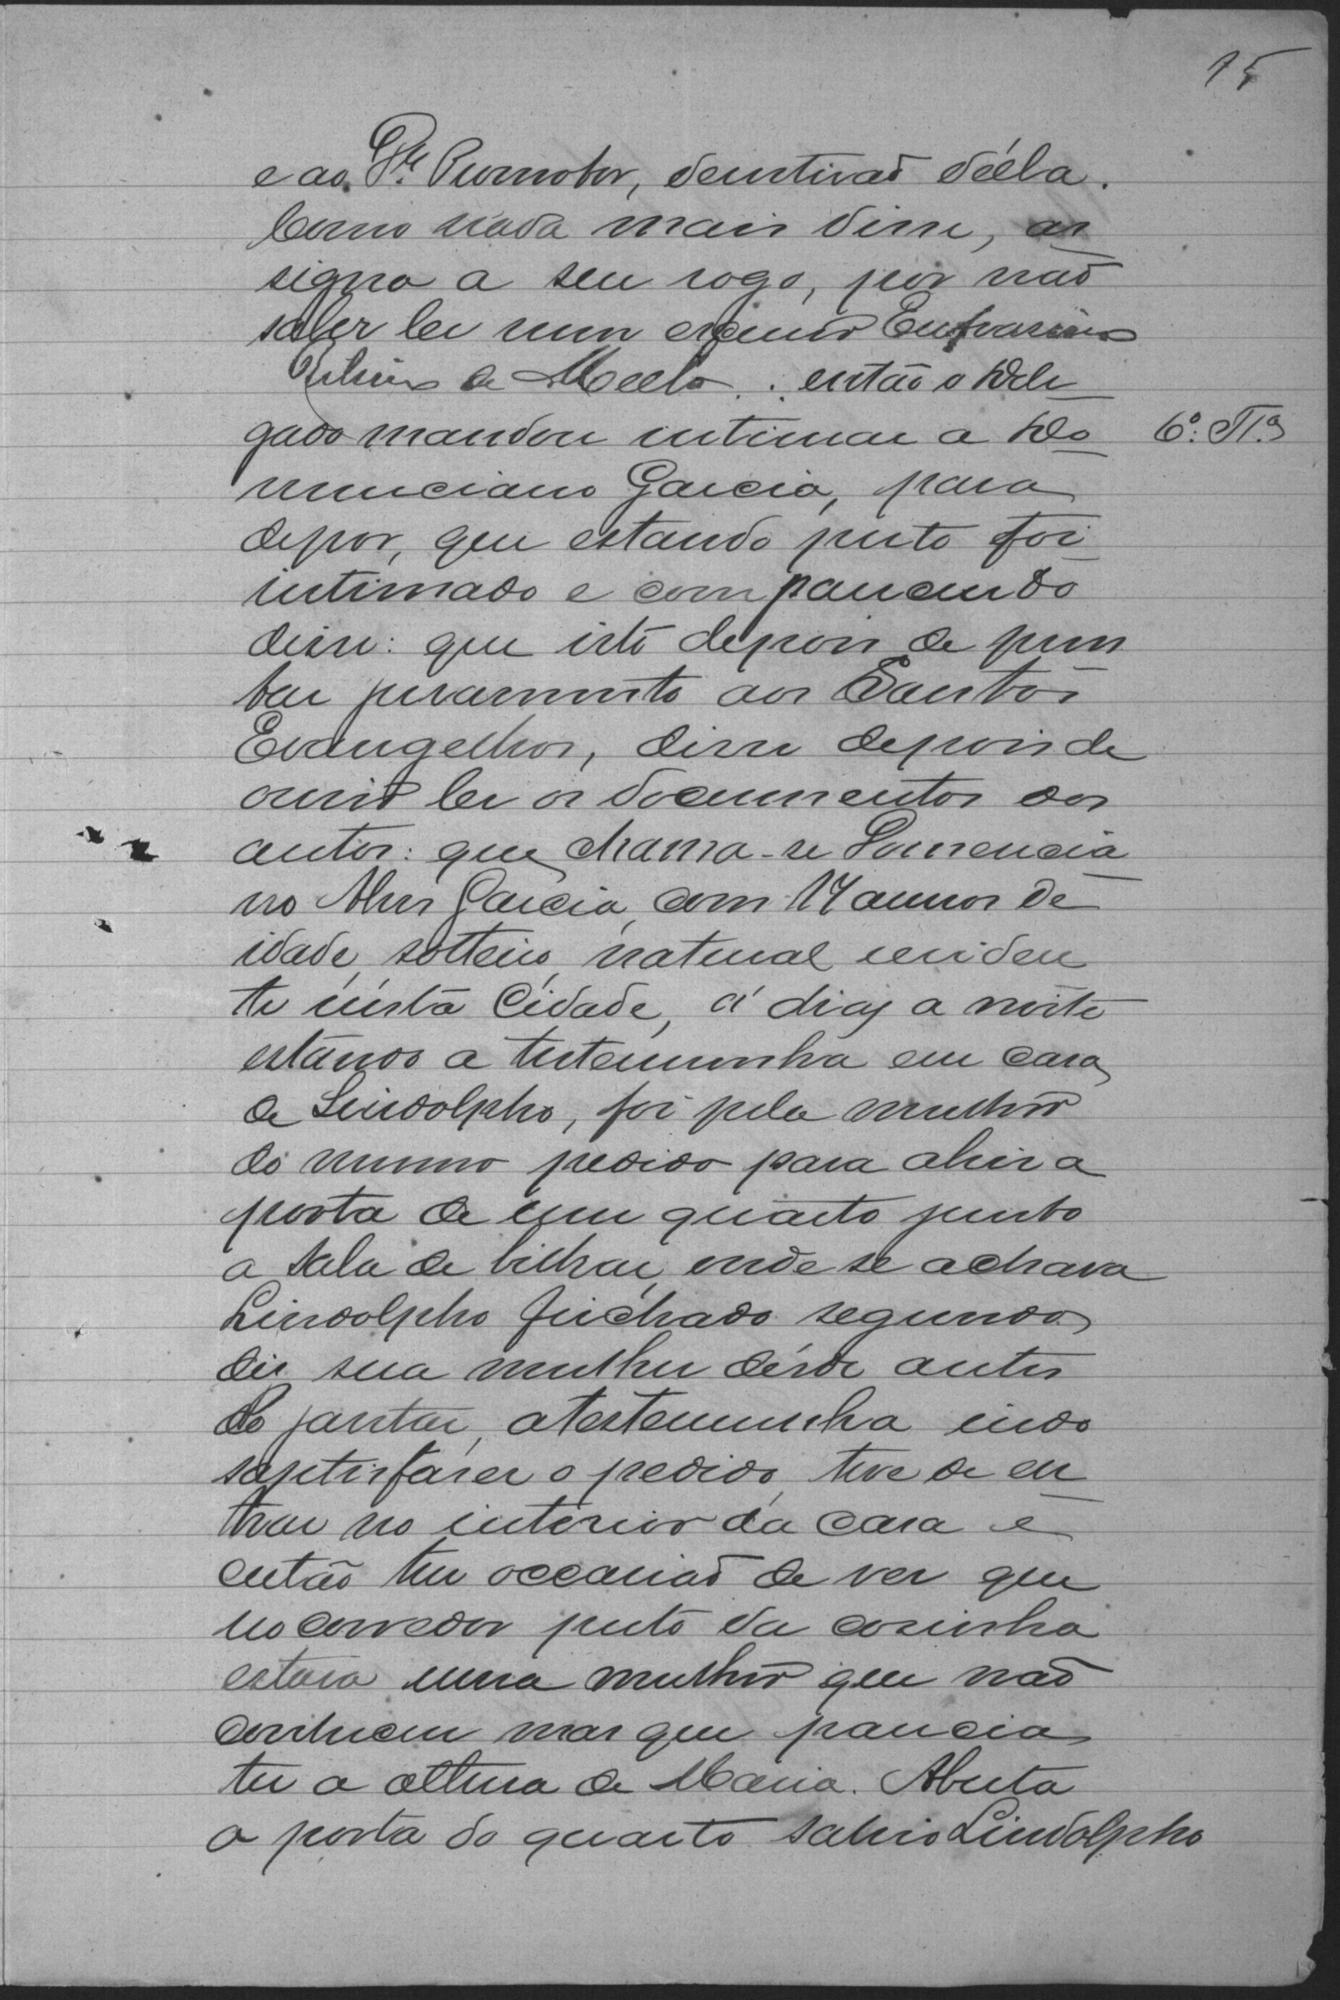 15
e ao Dr. Promotor, desistirão d'ella.
Como nada mais disse, as
signa a seu rogo, por não
saber ler nem escrever Eufrasino
de Mello. então o Dele
gado mandou intimar a Do 6ª: Tª
nunciano Garcia, para
depor, que estando perto foi
intimado e comparecendo
disse: que isto depois de pres
tar juramento aos Santos
Evangelhos, disse depois de
ouvir ler os documentos dos
autos: que chama-se Lourencia
no Alves Garcia, com 17 annos de
idade, solteiro, natural residen
te n'esta Cidade, á dias a noite
estando a testemunha em casa
de Lindolpho, foi pela mulher
do mesmo pedido para abrir a
porta de um quarto junto
a sala de bilhar, onde se achava
Lindolpho fechado segundo
diz sua mulher désde antes
do jantar, a testemunha indo
saptisfaser o pedido, teve de en
trar no interior da casa e
então teve occasião de ver que
no corredor perto da cosinha
estava uma mulher que não
conheceu mas que parecia
ter a altura de Maria. Aberta
a porta do quarto sahio Lindolpho